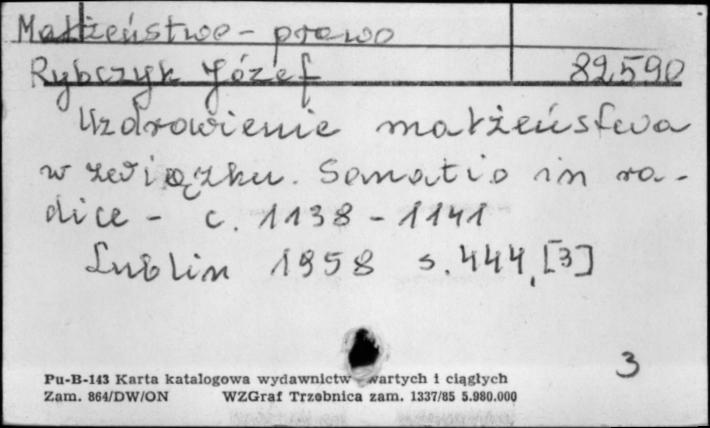 Małżeństwo - prawo
Rybczyk Józef 82590
Uzdrowienie małżeństwa
w związku. Sanatio in ra-
dice - c. 1138 - 1141
Lublin 1958 s. 444, [3]
3
Pu-B-143 Karta katalogowa wydawnictw zwartych i ciągłych
Zam. 864/DW/ON WZGraf Trzebnica zam. 1337/85 5.980.000